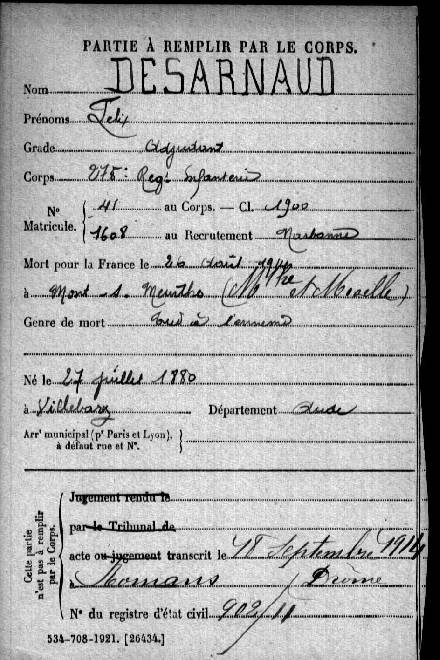 PARTIE À REMPLIR PAR LE CORPS.
Nom DESARNAUD
Prénoms Felix
Grade Adjudant
Corps 275e Regt Infanterie
Nº Matricule. 41 au Corps. — Cl. 1900
1608 au Recrutement Narbonne
Mort pour la France le 26 Août 1914
à Mont s. Meurthe (Mthe et Moselle)
Genre de mort Tué à l'ennemi
Né le 27 juillet 1880
à Villebazy Département Aude
Arrt municipal (pr Paris et Lyon),
à défaut rue et Nº.
Cette partie
n'est pas à remplir
par le Corps.
Jugement rendu le
par le Tribunal de
acte ou jugement transcrit le 18 Septembre 1914
à Romans Drôme
Nº du registre d'état civil 902/11
534-708-1921. [26434.]